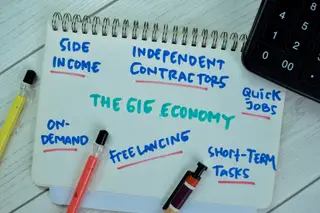 SIDE
INCOME
INDEPENDENT
CONTRACTORS
QUICK
JOBS
THE GIG ECONOMY
ON-
DEMAND
FREELANCING
SHORT-TERM
TASKS
0
00